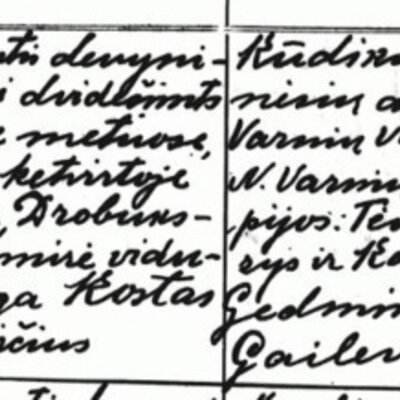 tis devyni-
i dvidešimts
e metuose,
ketvirtoje
, Drobuks-
mirė vidu-
ga Kostas
ičius
Kūdik
nisių a
Varnių V
N. Varnių
pijos: Tė
rys ir Ka
Gedmin
Gailev